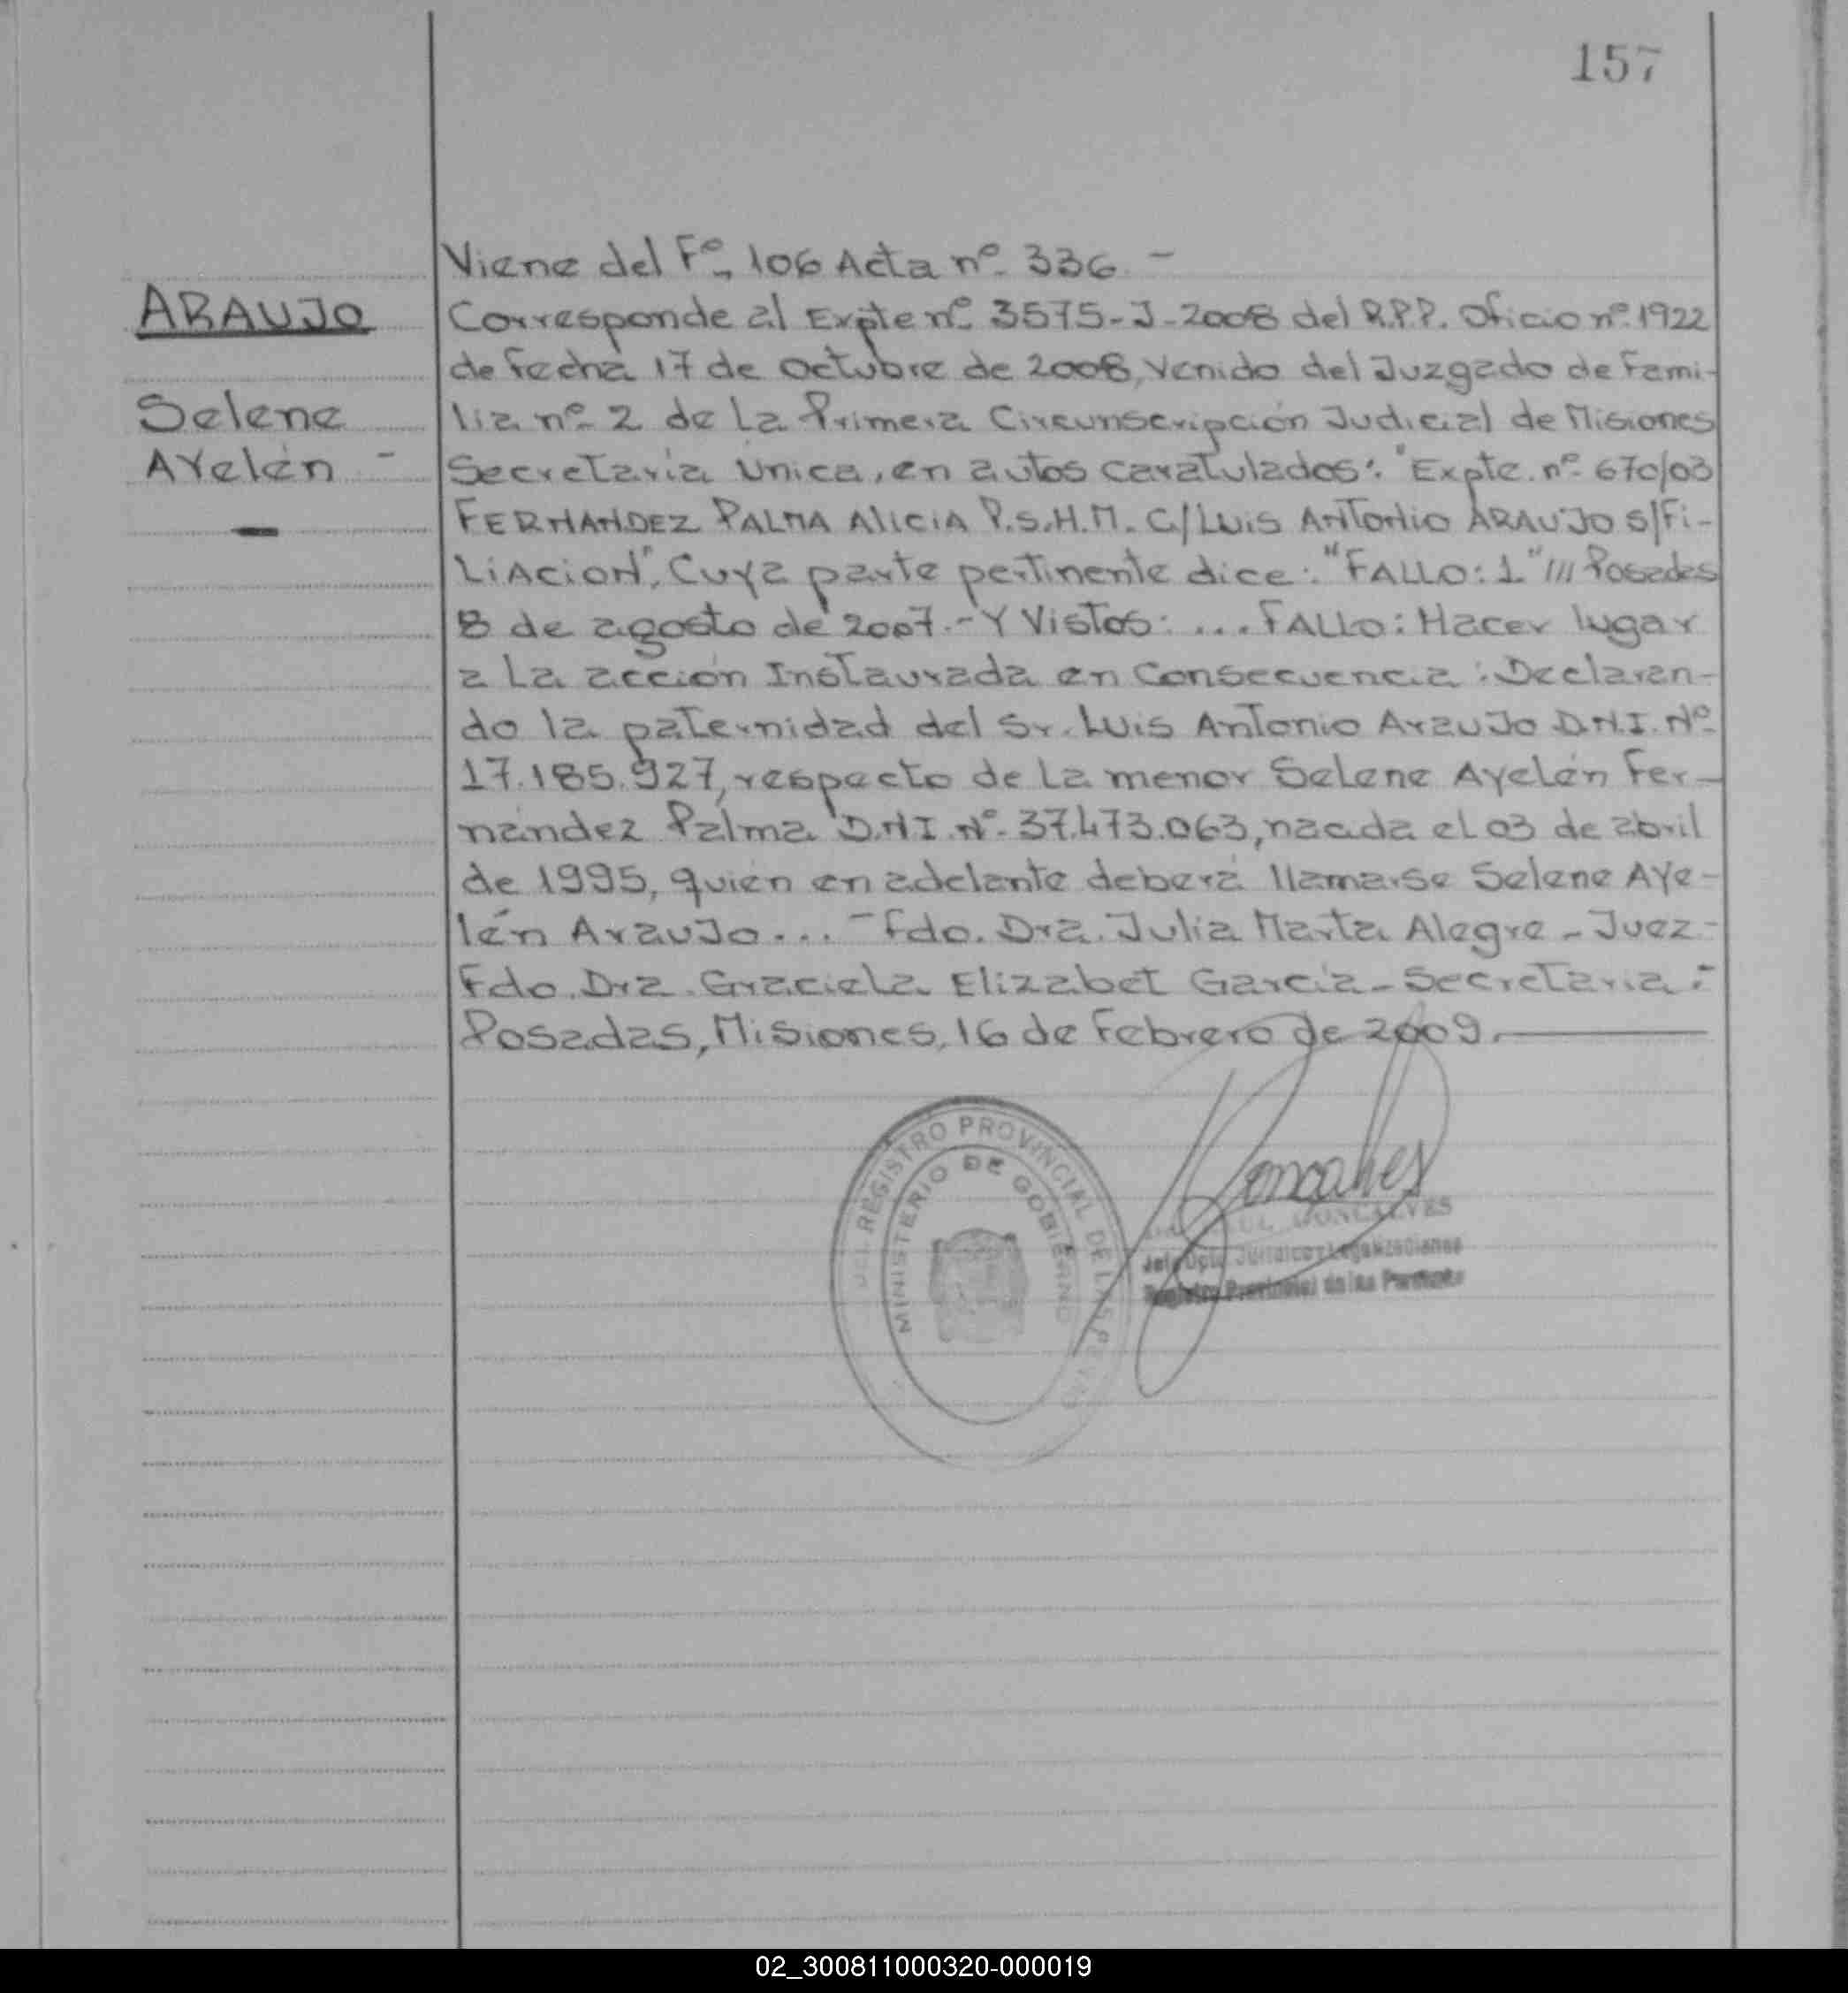 157
Viene del Fº 106 Acta nº 336. -
ARAUJO
Selene
Ayelén -
Corresponde al Expte nº 3575-J-2008 del R.P.P. Oficio nº 1922
de fecha 17 de Octubre de 2008, venido del Juzgado de Fami-
lia nº 2 de La Primera Circunscripción Judicial de Misiones
Secretaría Unica, en autos caratulados: "Expte. nº 670/03
FERNANDEZ PALMA ALICIA P.S.H.M. C/LUIS ANTONIO ARAUJO S/Fi-
LIACION", Cuya parte pertinente dice: "FALLO: 1" /// Posadas
8 de agosto de 2007.- Y Vistos: ... FALLO: Hacer lugar
a La acción Instaurada en Consecuencia: Declaran-
do la paternidad del Sr. Luis Antonio Araujo D.N.I. Nº
17.185.927, respecto de La menor Selene Ayelén Fer-
nández Palma D.N.I. Nº 37.473.063, nacida el 03 de abril
de 1995, quién en adelante deberá llamarse Selene Aye-
lén Araujo... - Fdo. Dra. Julia Marta Alegre - Juez -
Fdo. Dra. Graciela Elizabet García - Secretaria. -
Posadas, Misiones, 16 de Febrero de 2009.
REGISTRO PROVINCIAL DE LAS
MINISTERIO DE GOBIERNO
Goncalves
GONCALVES
Jefe Dpto. Jurídico y Legalizaciones
Registro Provincial de las Personas
02_300811000320-000019